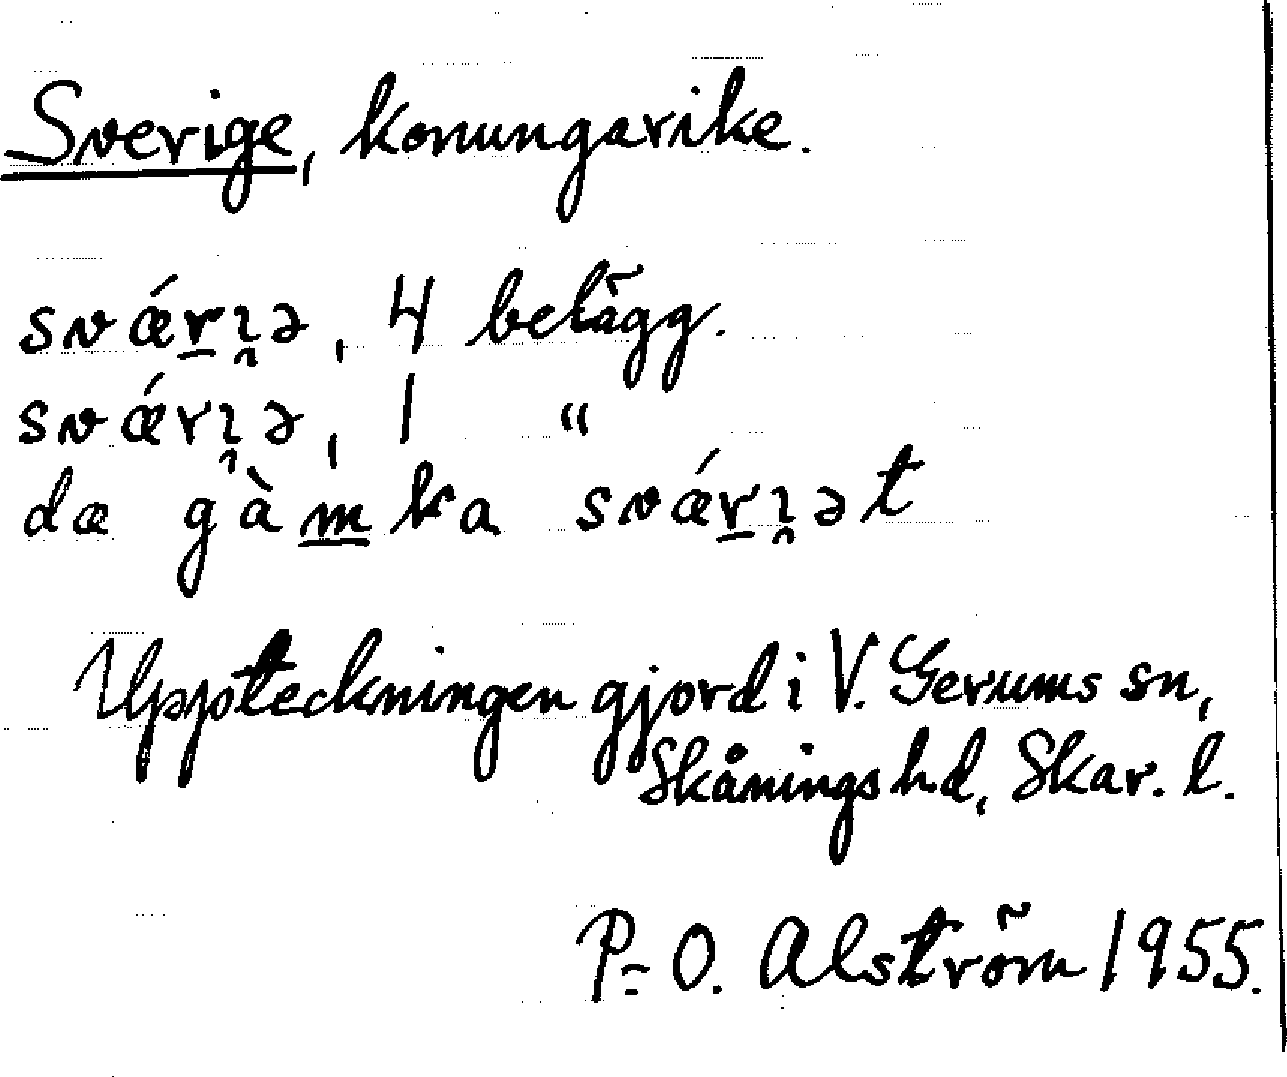 Sverige, konungarike.
svǽr̲ı̯ə, 4 belägg.
svǽrı̯ə, 1 "
dæ gàm̲ka svǽr̲ı̯ət
Uppteckningen gjord i V. Gerums sn,
Skånings hd, Skar. l.
P.-O. Alström 1955.